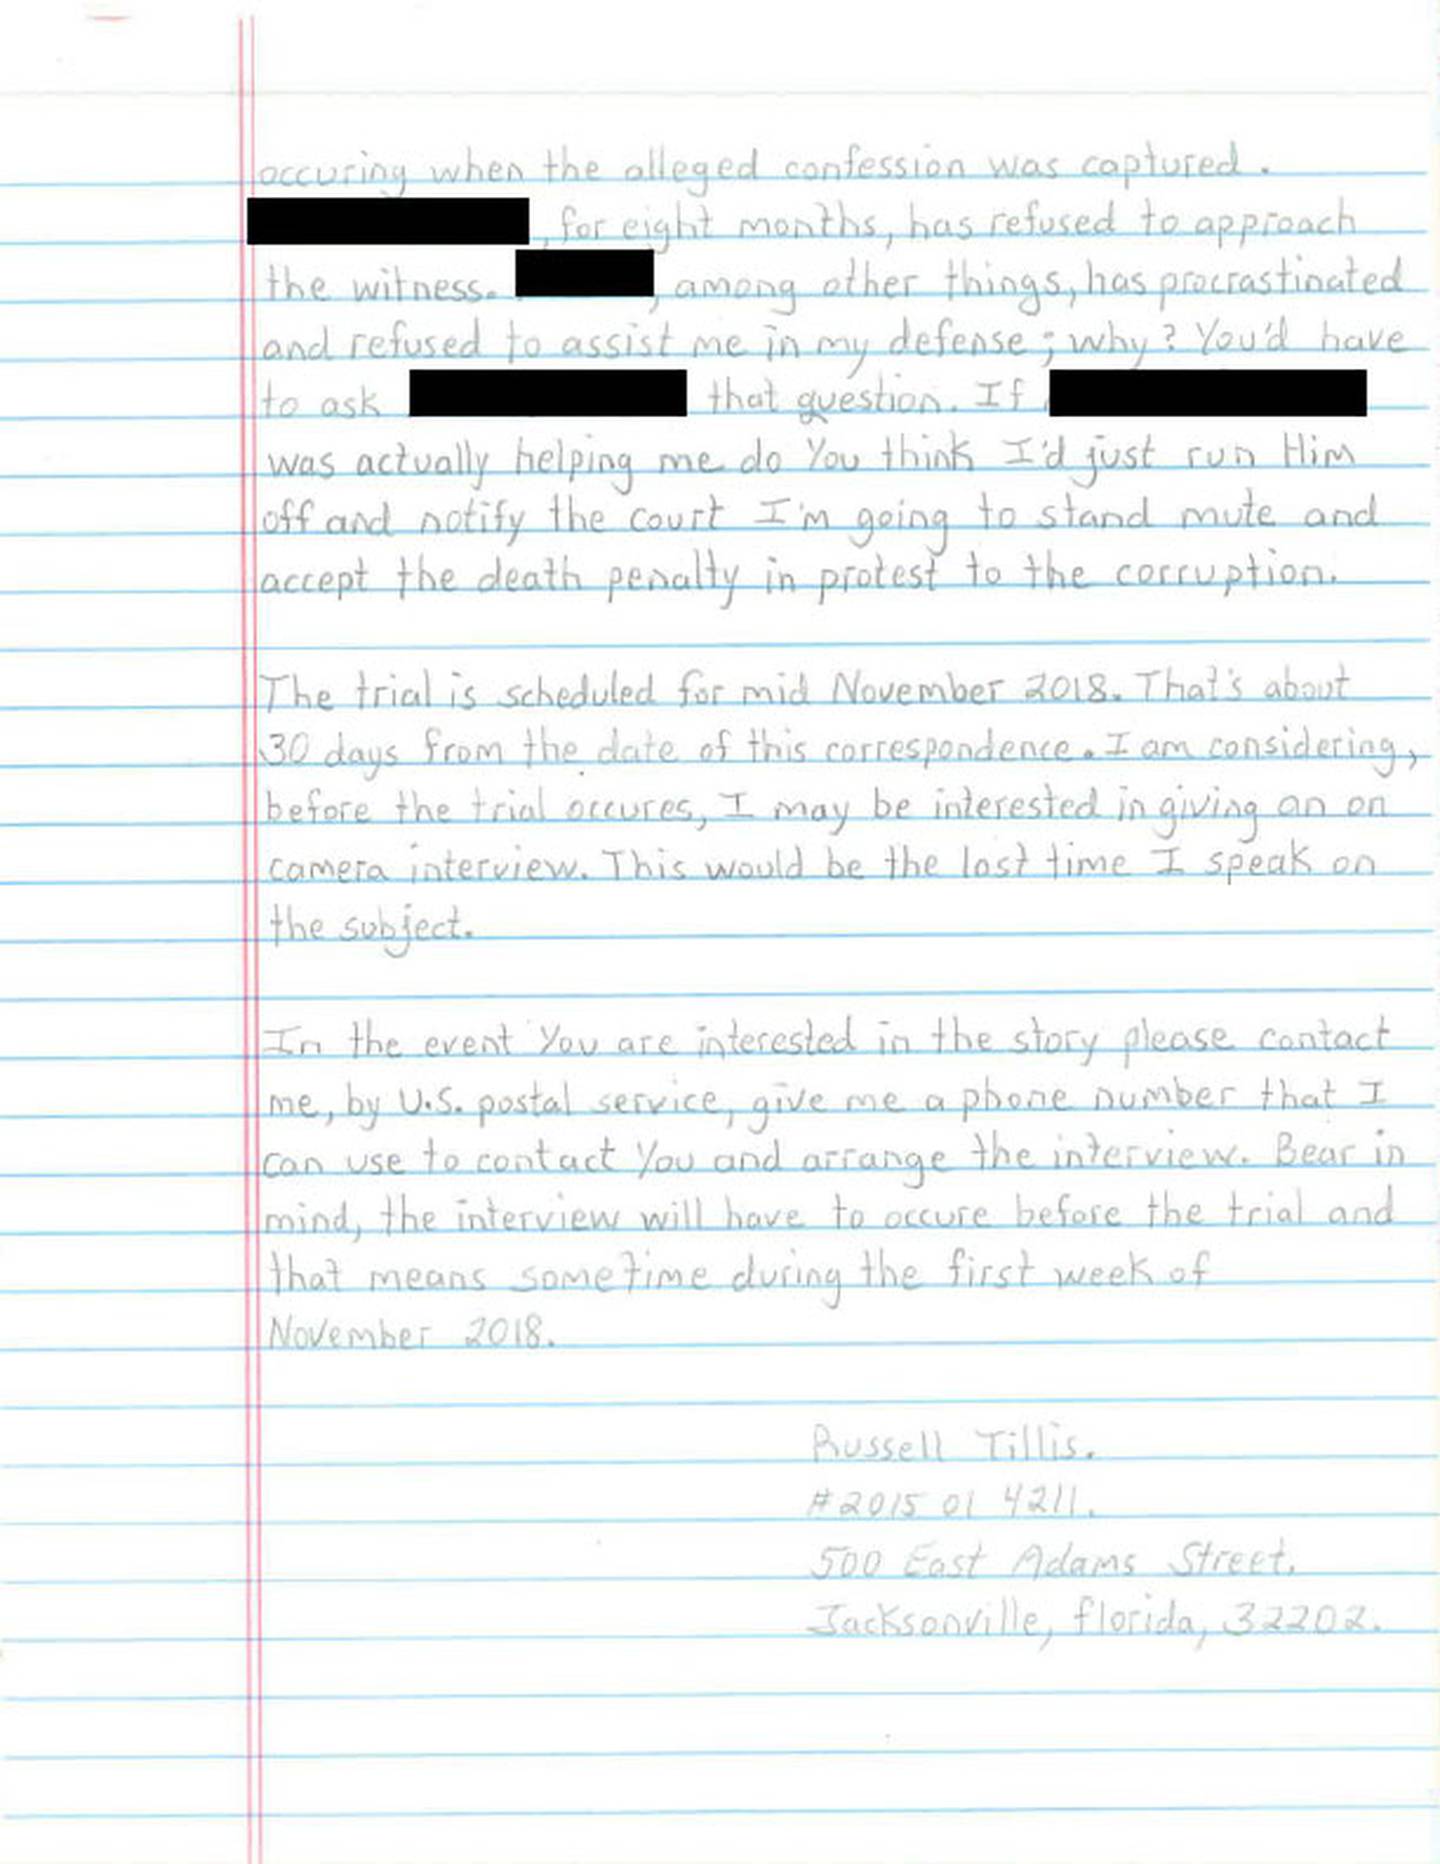 occuring when the alleged confession was captured.
, for eight months, has refused to approach
the witness. , among other things, has procrastinated
and refused to assist me in my defense; why? You'd have
to ask that question. If
was actually helping me do You think I'd just run Him
off and notify the court I'm going to stand mute and
accept the death penalty in protest to the corruption.
The trial is scheduled for mid November 2018. That's about
30 days from the date of this correspondence. I am considering,
before the trial occures, I may be interested in giving an on
camera interview. This would be the last time I speak on
the subject.
In the event You are interested in the story please contact
me, by U.S. postal service, give me a phone number that I
can use to contact You and arrange the interview. Bear in
mind, the interview will have to occure before the trial and
that means sometime during the first week of
November 2018.
Russell Tillis.
#2015 01 4211.
500 East Adams Street.
Jacksonville, florida, 32202.